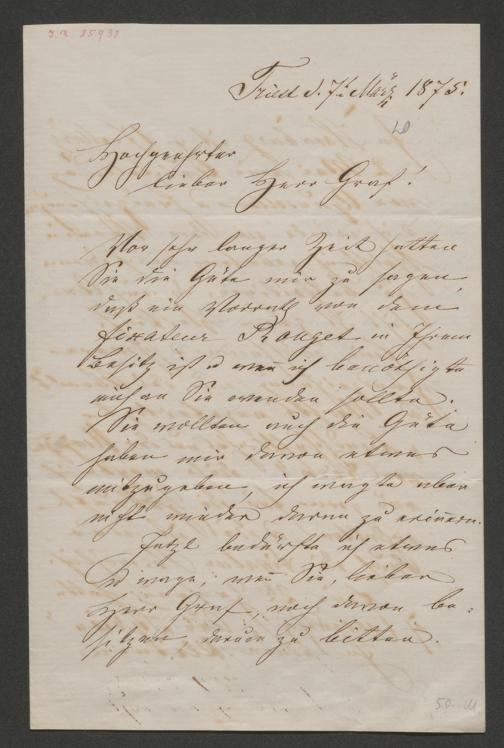 J.N. 85938
Triest d. 7t März 1875.
Hochgeehrter
lieber Herr Graf!
Vor sehr langer Zeit hatten
Sie die Güte mir zu sagen,
daß ein Vorrath von dem
fixateur Rouget in Ihrem
Besitz ist u wen̄ ich benöthigte
mich an Sie wenden sollte.
Sie wollten auch die Güte
haben mir davon etwas
mitzugeben, ich wagte aber
nicht wieder daran zu erinnern.
Jetzt bedürfte ich etwas
u wage, wen̄ Sie, lieber
Herr Graf, noch davon be=
sitzen, darum zu bitten.